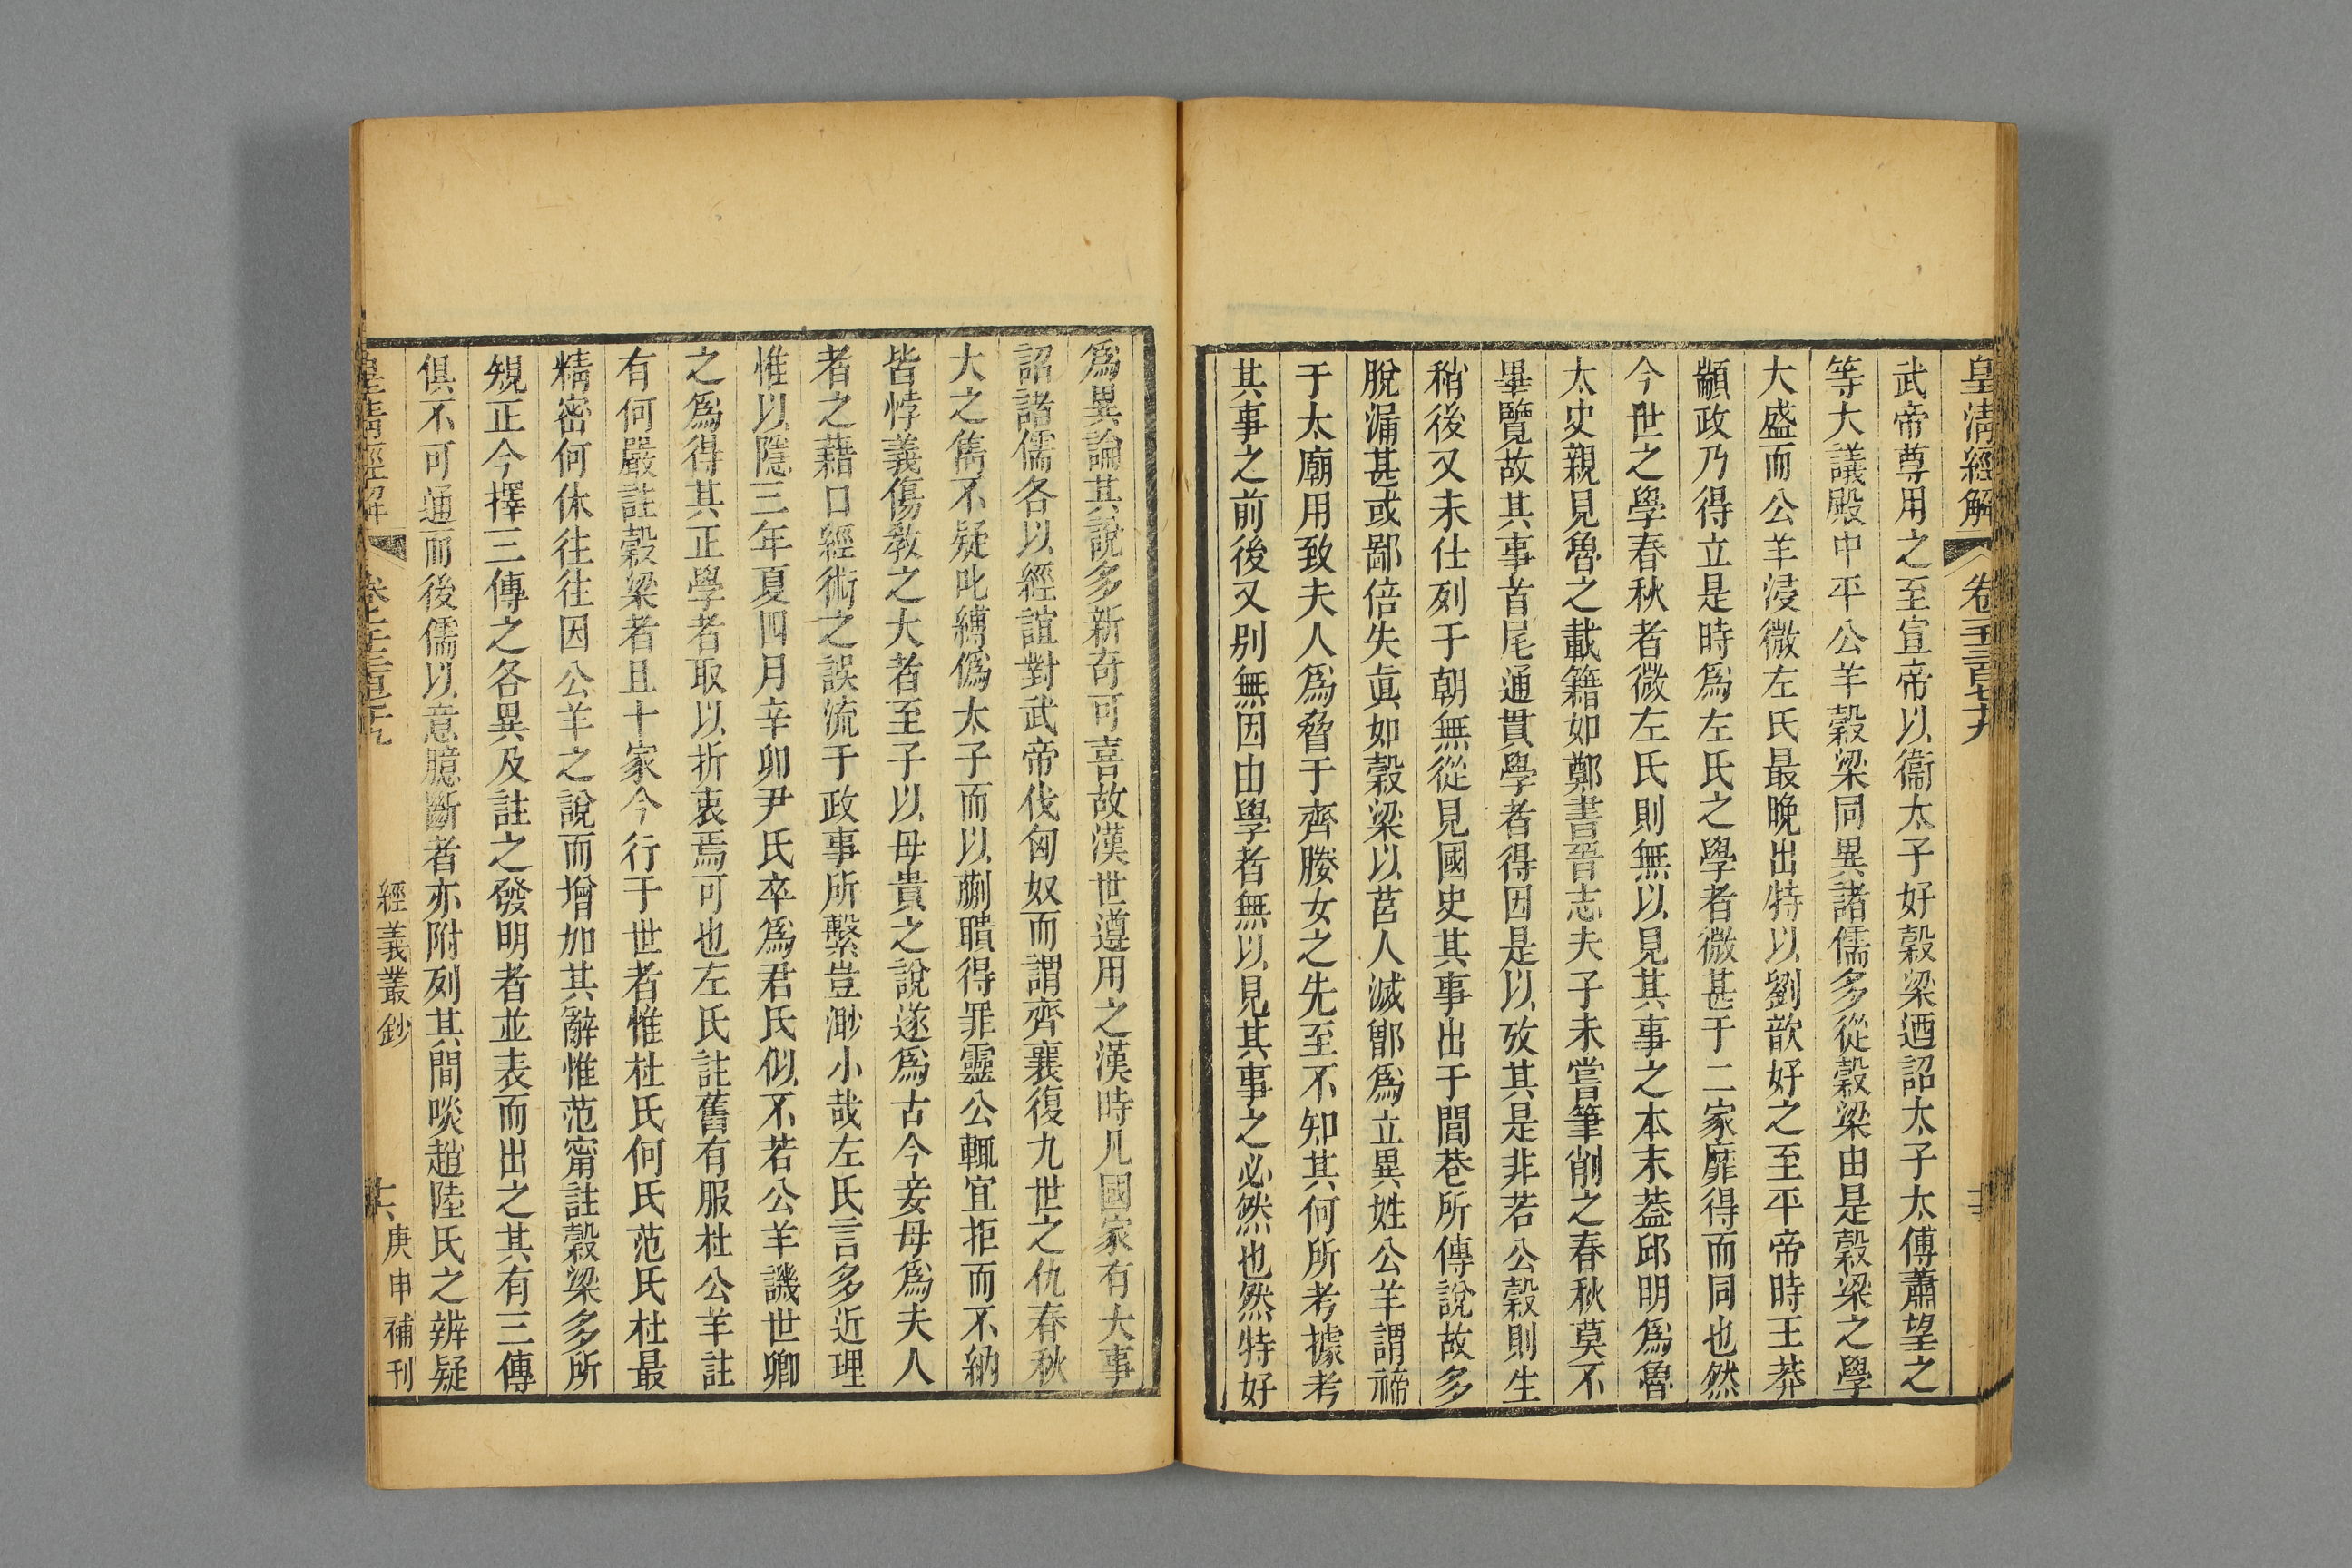 皇清經解
武帝尊用之至宣帝以衞太子好穀梁迺詔太子太傅蕭望之
等大議殿中平公羊穀梁同異諸儒多從穀梁由是穀梁之學
大盛而公羊浸微左氏最晚出特以劉歆好之至平帝時王莽
顓政乃得立是時爲左氏之學者微甚于二家靡得而同也然
今世之學春秋者微左氏則無以見其事之本末葢邱明爲魯
太史親見魯之載籍如鄭書晉志夫子未嘗筆削之春秋莫不
畢覽故其事首尾通貫學者得因是以攷其是非若公穀則生
稍後又未仕列于朝無從見國史其事出于閭巷所傳說故多
脫漏甚或鄙倍失眞如穀梁以莒人滅鄫爲立異姓公羊謂禘
于太廟用致夫人爲脅于齊媵女之先至不知其何所考據考
其事之前後又別無因由學者無以見其事之必然也然特好
爲異論其說多新奇可喜故漢世遵用之漢時凡國家有大事
詔諸儒各以經誼對武帝伐匈奴而謂齊襄復九世之仇春秋
大之雋不疑叱縛僞太子而以蒯聵得罪靈公輒宜拒而不納
皆悖義傷敎之大者至子以母貴之說遂爲古今妾母爲夫人
者之藉口經術之誤流于政事所繫豈渺小哉左氏言多近理
惟以隱三年夏四月辛卯尹氏卒爲君氏似不若公羊譏世卿
之爲得其正學者取以折衷焉可也左氏註舊有服杜公羊註
有何嚴註穀梁者且十家今行于世者惟杜氏何氏范氏杜最
精密何休往往因公羊之說而增加其辭惟范甯註穀梁多所
規正今擇三傳之各異及註之發明者並表而出之其有三傳
俱不可通而後儒以意臆斷者亦附列其間啖趙陸氏之辨疑
皇清經解
經義叢鈔
庚申補刊